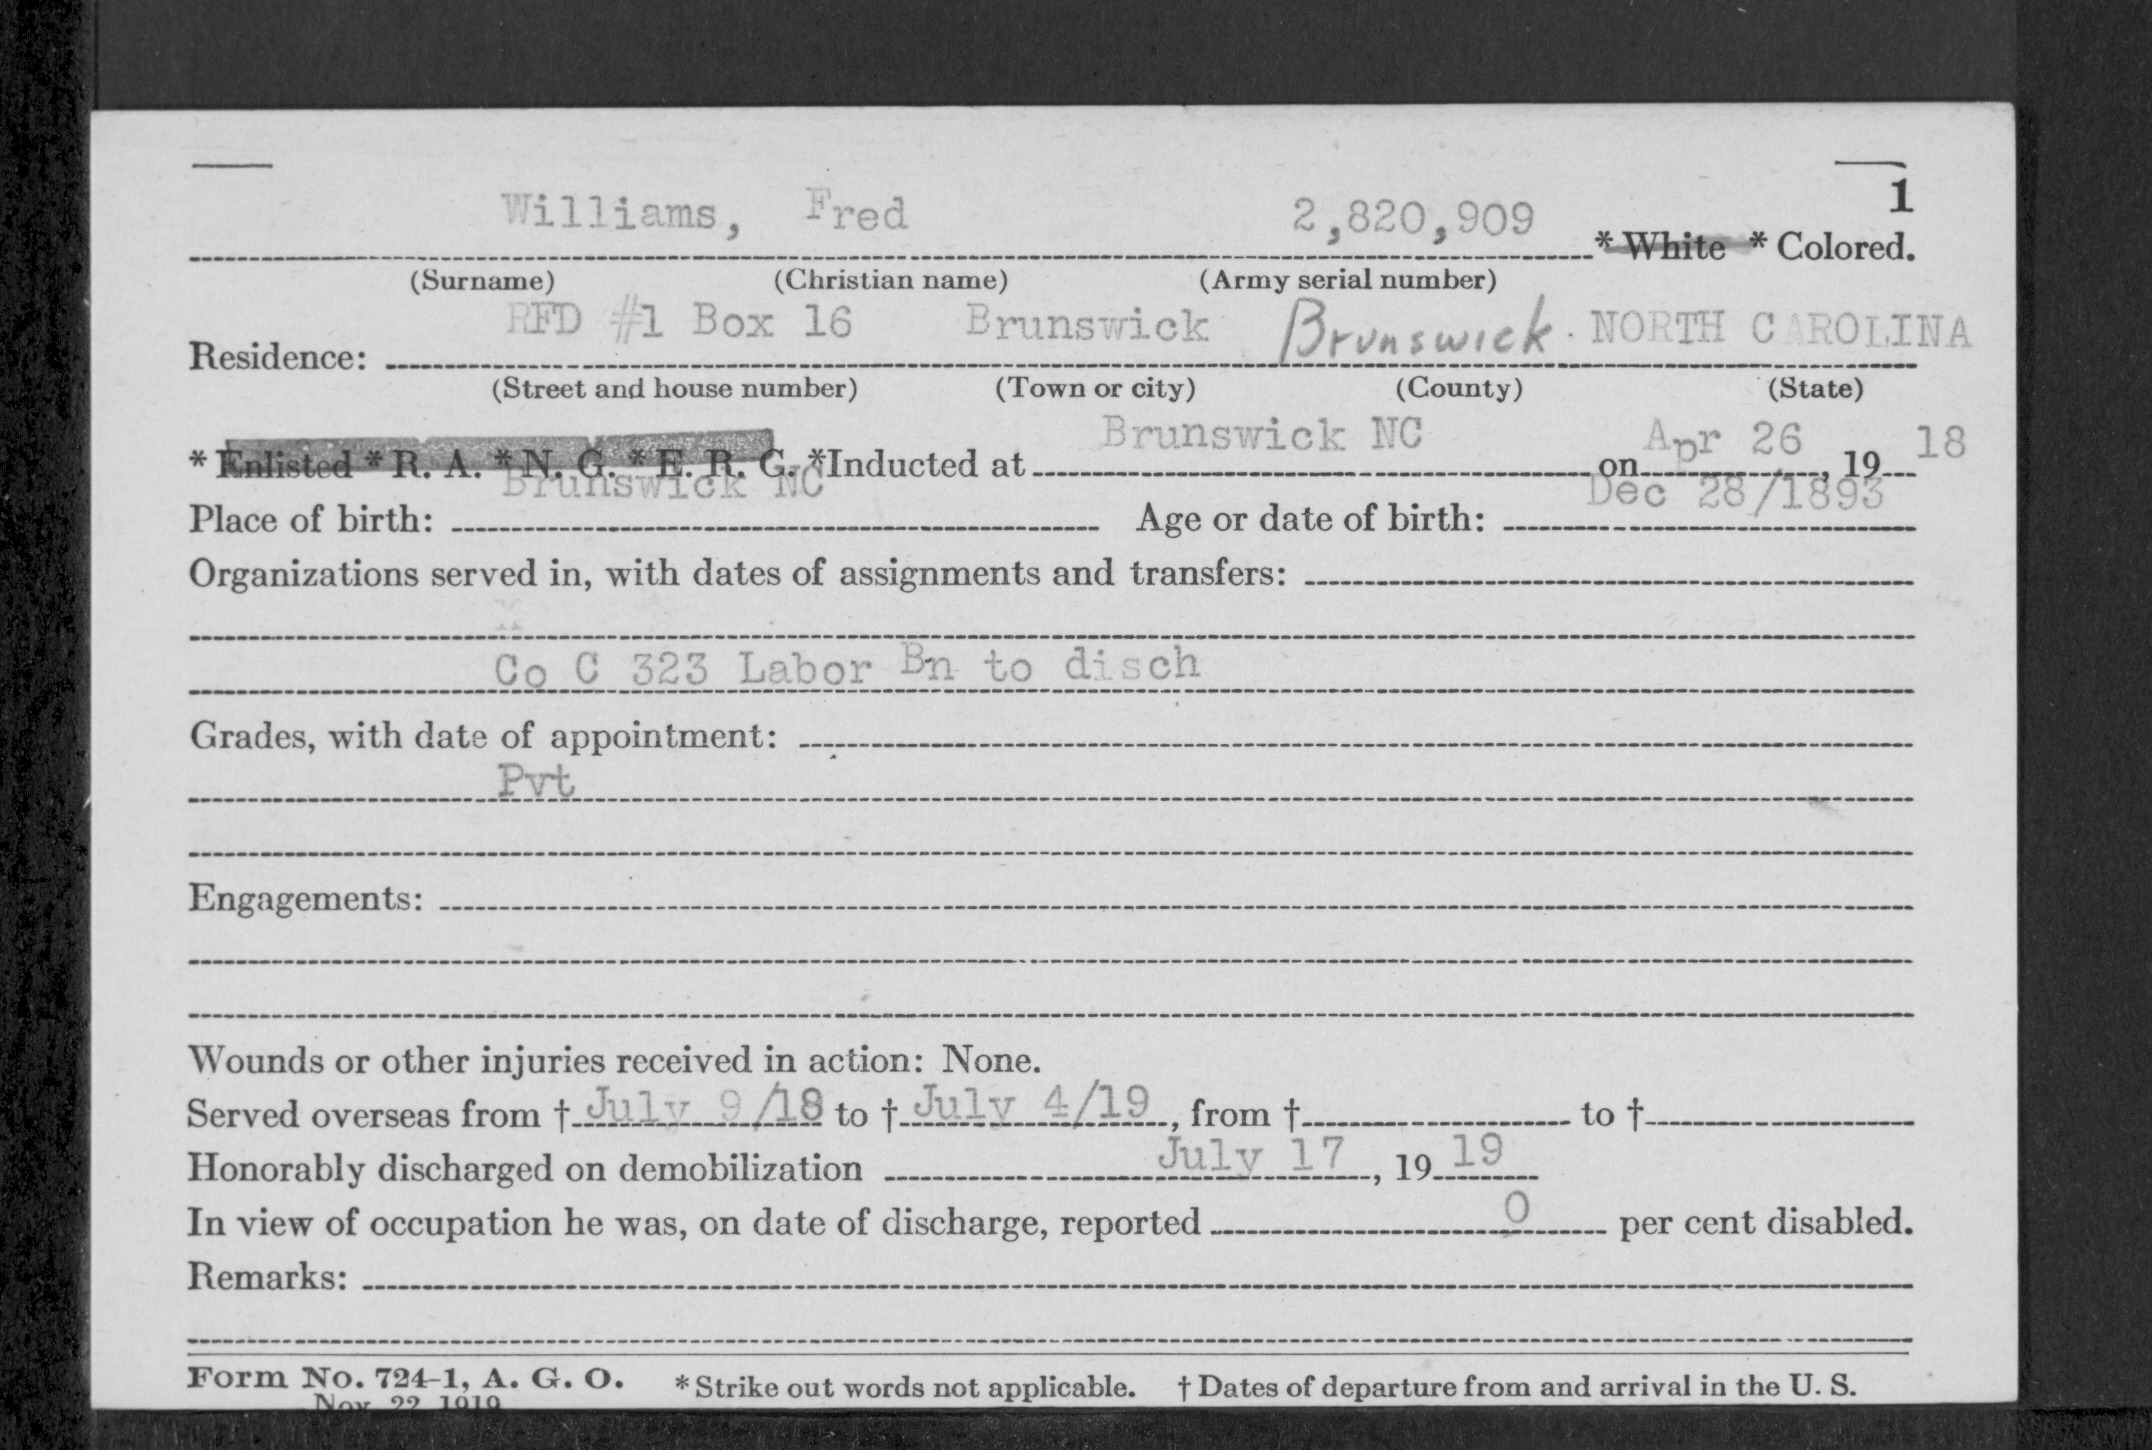 1
Williams, Fred 2,820,909 * White * Colored.
(Surname) (Christian name) (Army serial number)
RFD #1 Box 16 Brunswick Brunswick NORTH CAROLINA
Residence:
(Street and house number) (Town or city) (County) (State)
* Enlisted * R. A. * N. G. * E. R. C. *Inducted at Brunswick NC on Apr 26, 1918
Place of birth: Brunswick NC Age or date of birth: Dec 28/1893
Organizations served in, with dates of assignments and transfers:
Co C 323 Labor Bn to disch
Grades, with date of appointment:
Pvt
Engagements:
Wounds or other injuries received in action: None.
Served overseas from † July 9/18 to † July 4/19, from † to †
Honorably discharged on demobilization July 17, 19 19
In view of occupation he was, on date of discharge, reported 0 per cent disabled.
Remarks:
Form No. 724-1, A. G. O. * Strike out words not applicable. † Dates of departure from and arrival in the U. S.
Nov. 22, 1919